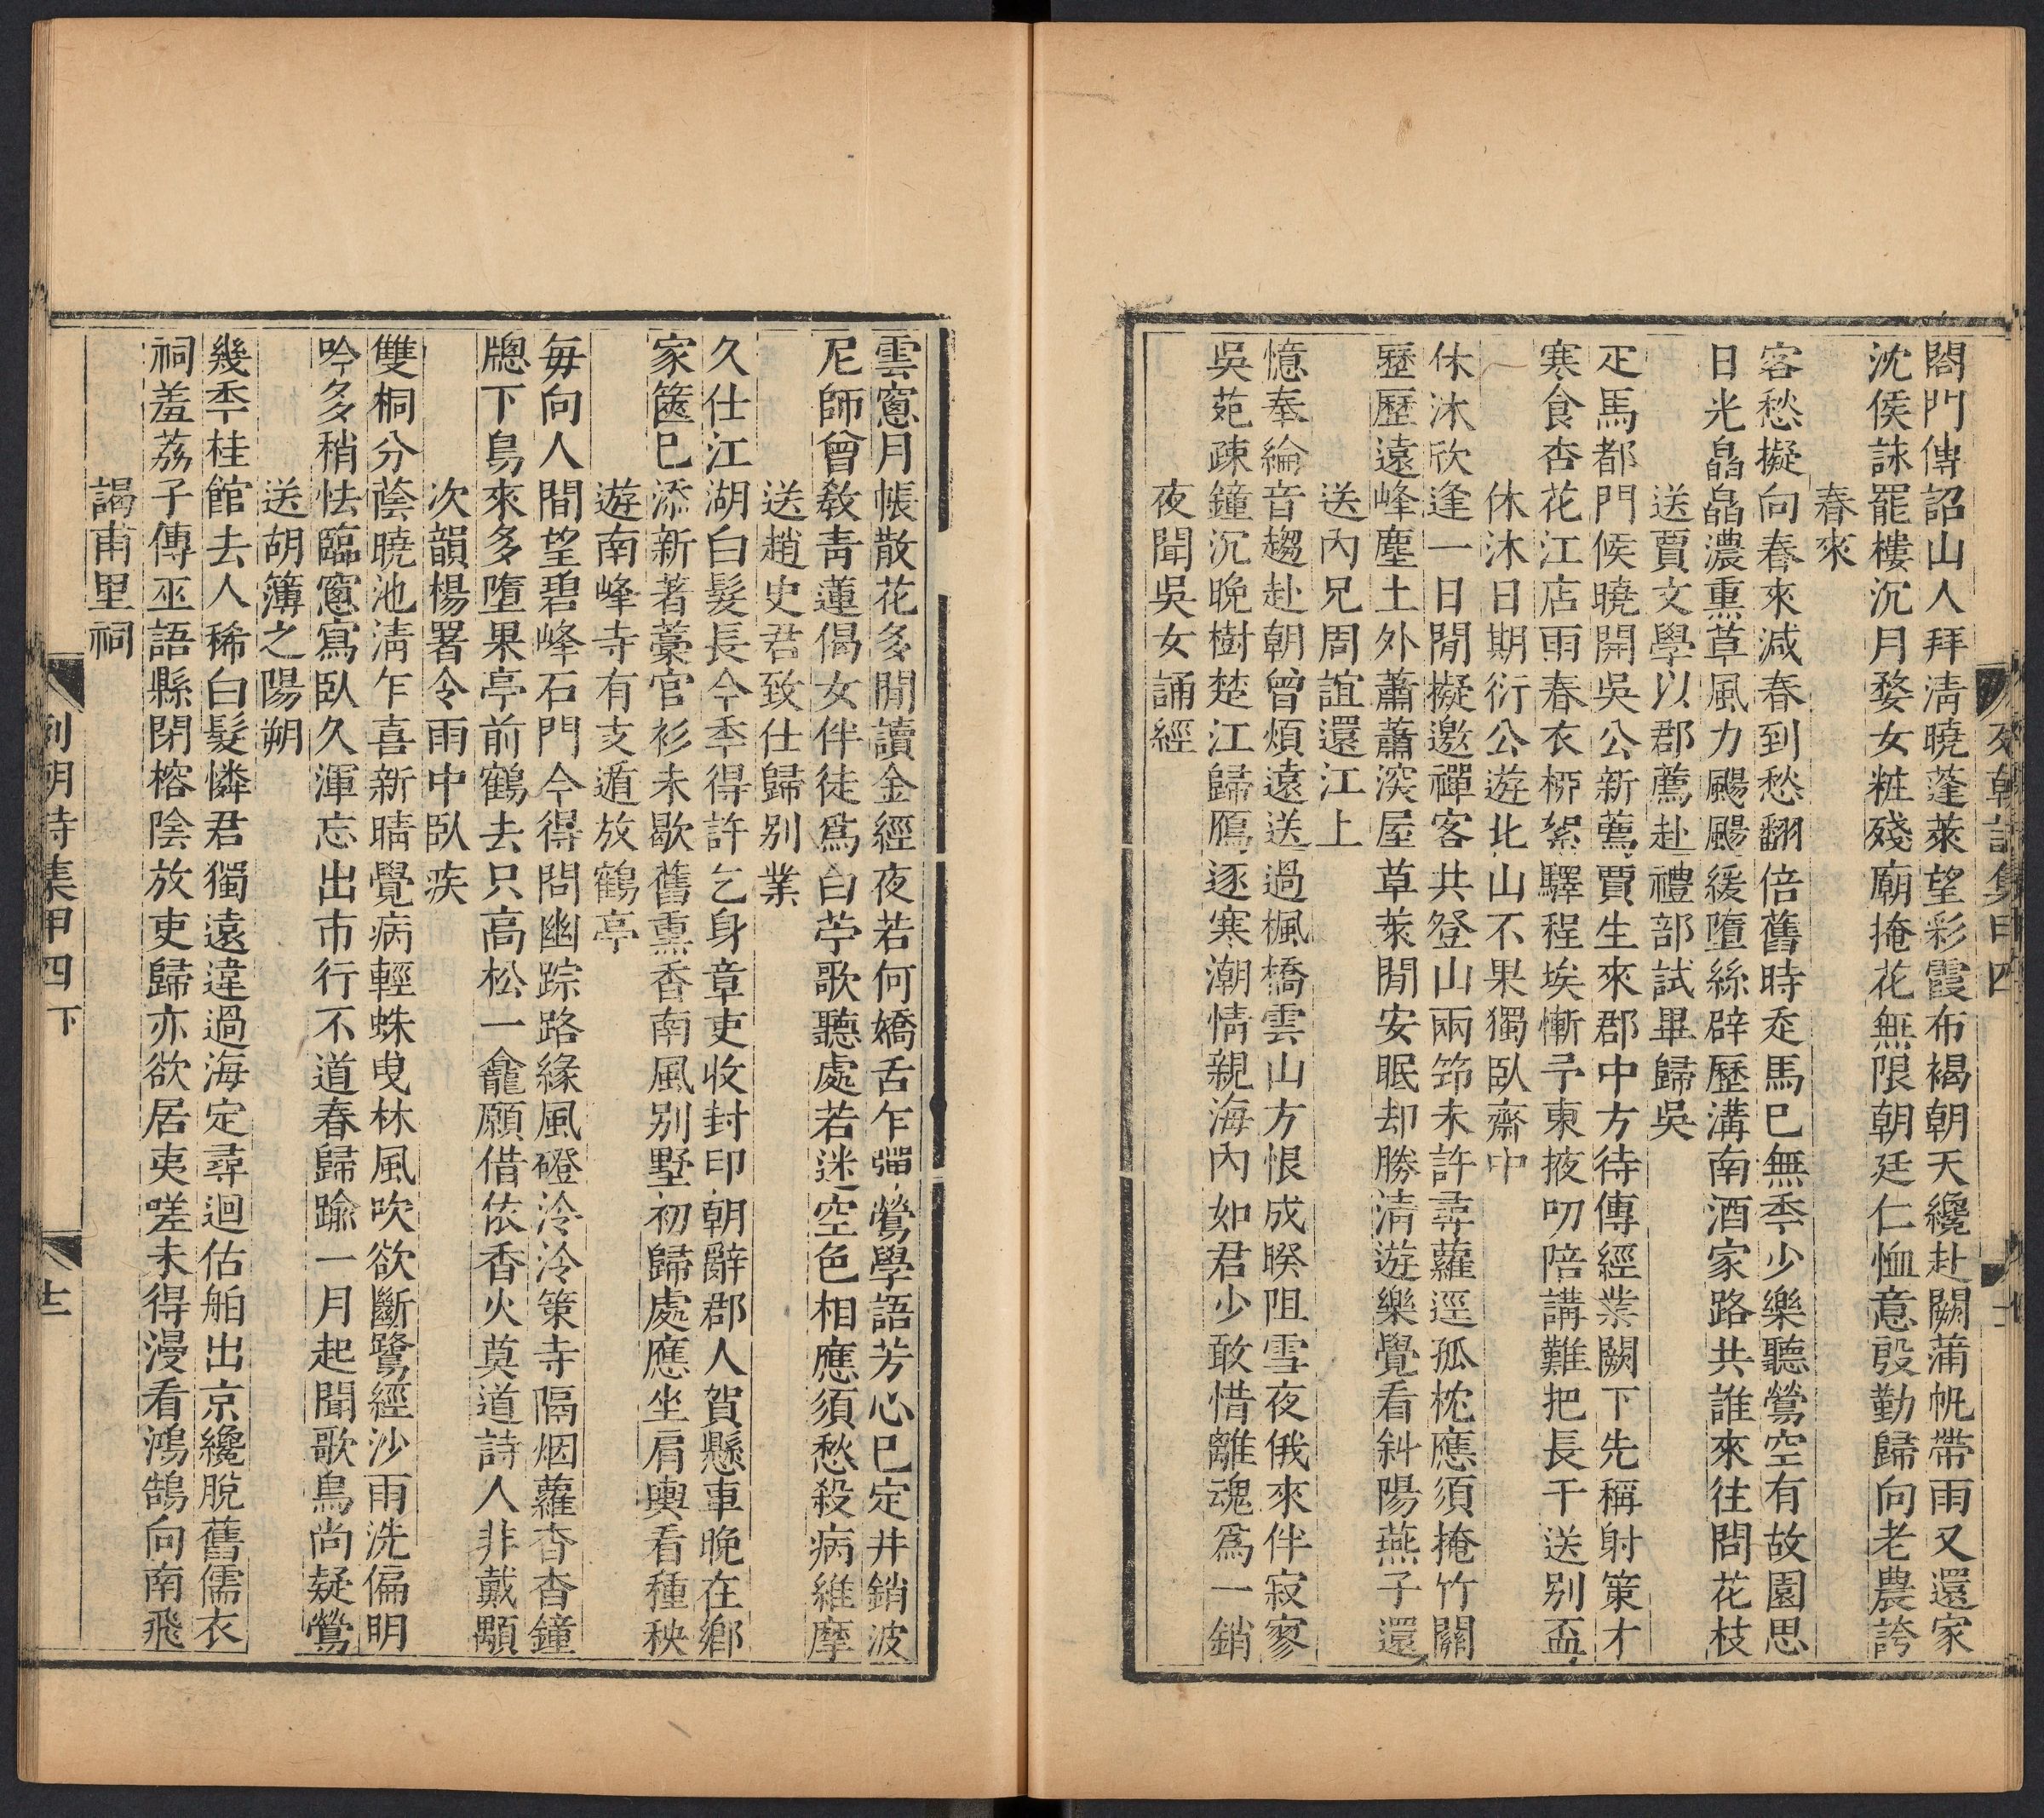 閤門傳詔山人拜淸曉蓬萊望彩霞布褐朝天纔赴闕蒲帆帶雨又還家
沈侯詠罷樓沉月婺女粧殘廟掩花無限朝廷仁恤意殷勤歸向老農誇
春來
客愁擬向春來減春到愁翻倍舊時走馬已無秊少樂聽鶯空有故園思
日光皛皛濃熏草風力颺颺緩墮絲辟歷溝南酒家路共誰來往問花枝
送賈文學以郡薦赴禮部試畢歸吳
疋馬都門候曉開吳公新薦賈生來郡中方待傳經業闕下先稱射策才
寒食杏花江店雨春衣柳絮驛程埃慚予東掖叨陪講難把長干送别盃
休沐日期衍公遊北山不果獨臥齋中
休沐欣逢一日閒擬邀禪客共登山兩笻未許尋蘿逕孤枕應須掩竹關
歷歷遠峰塵土外蕭蕭深屋草萊閒安眠却勝淸遊樂覺看斜陽燕子還
送內兄周誼還江上
憶奉綸音趨赴朝曾煩遠送過楓橋雲山方恨成暌阻雪夜俄來伴寂寥
吳苑疎鐘沉晚樹楚江歸鴈逐寒潮情親海內如君少敢惜離魂爲一銷
夜聞吳女誦經
雲窻月帳散花多閒讀金經夜若何嬌舌乍彈鶯學語芳心已定井銷波
尼師曾敎靑蓮偈女伴徒爲白苧歌聽處若迷空色相應須愁殺病維摩
送趙史君致仕歸别業
久仕江湖白髮長今秊得許乞身章吏收封印朝辭郡人賀懸車晚在鄉
家篋已添新著藁官衫未歇舊熏香南風别墅初歸處應坐肩輿看種秧
遊南峰寺有支遁放鶴亭
每向人間望碧峰石門今得問幽踪路緣風磴泠泠策寺隔烟蘿杳杳鐘
牕下鳥來多墮果亭前鶴去只高松一龕願借依香火莫道詩人非戴顒
次韻楊署令雨中臥疾
雙桐分蔭曉池淸乍喜新晴覺病輕蛛曳林風吹欲斷鷺經沙雨洗偏明
吟多稍怯臨窻寫臥久渾忘出市行不道春歸踰一月起聞歌鳥尚疑鶯
送胡簿之陽朔
幾秊桂館去人稀白髮憐君獨遠違過海定尋迴估舶出京纔脫舊儒衣
祠羞荔子傳巫語縣閉榕陰放吏歸亦欲居夷嗟未得漫看鴻鵠向南飛
謁甫里祠
列朝詩集甲四下